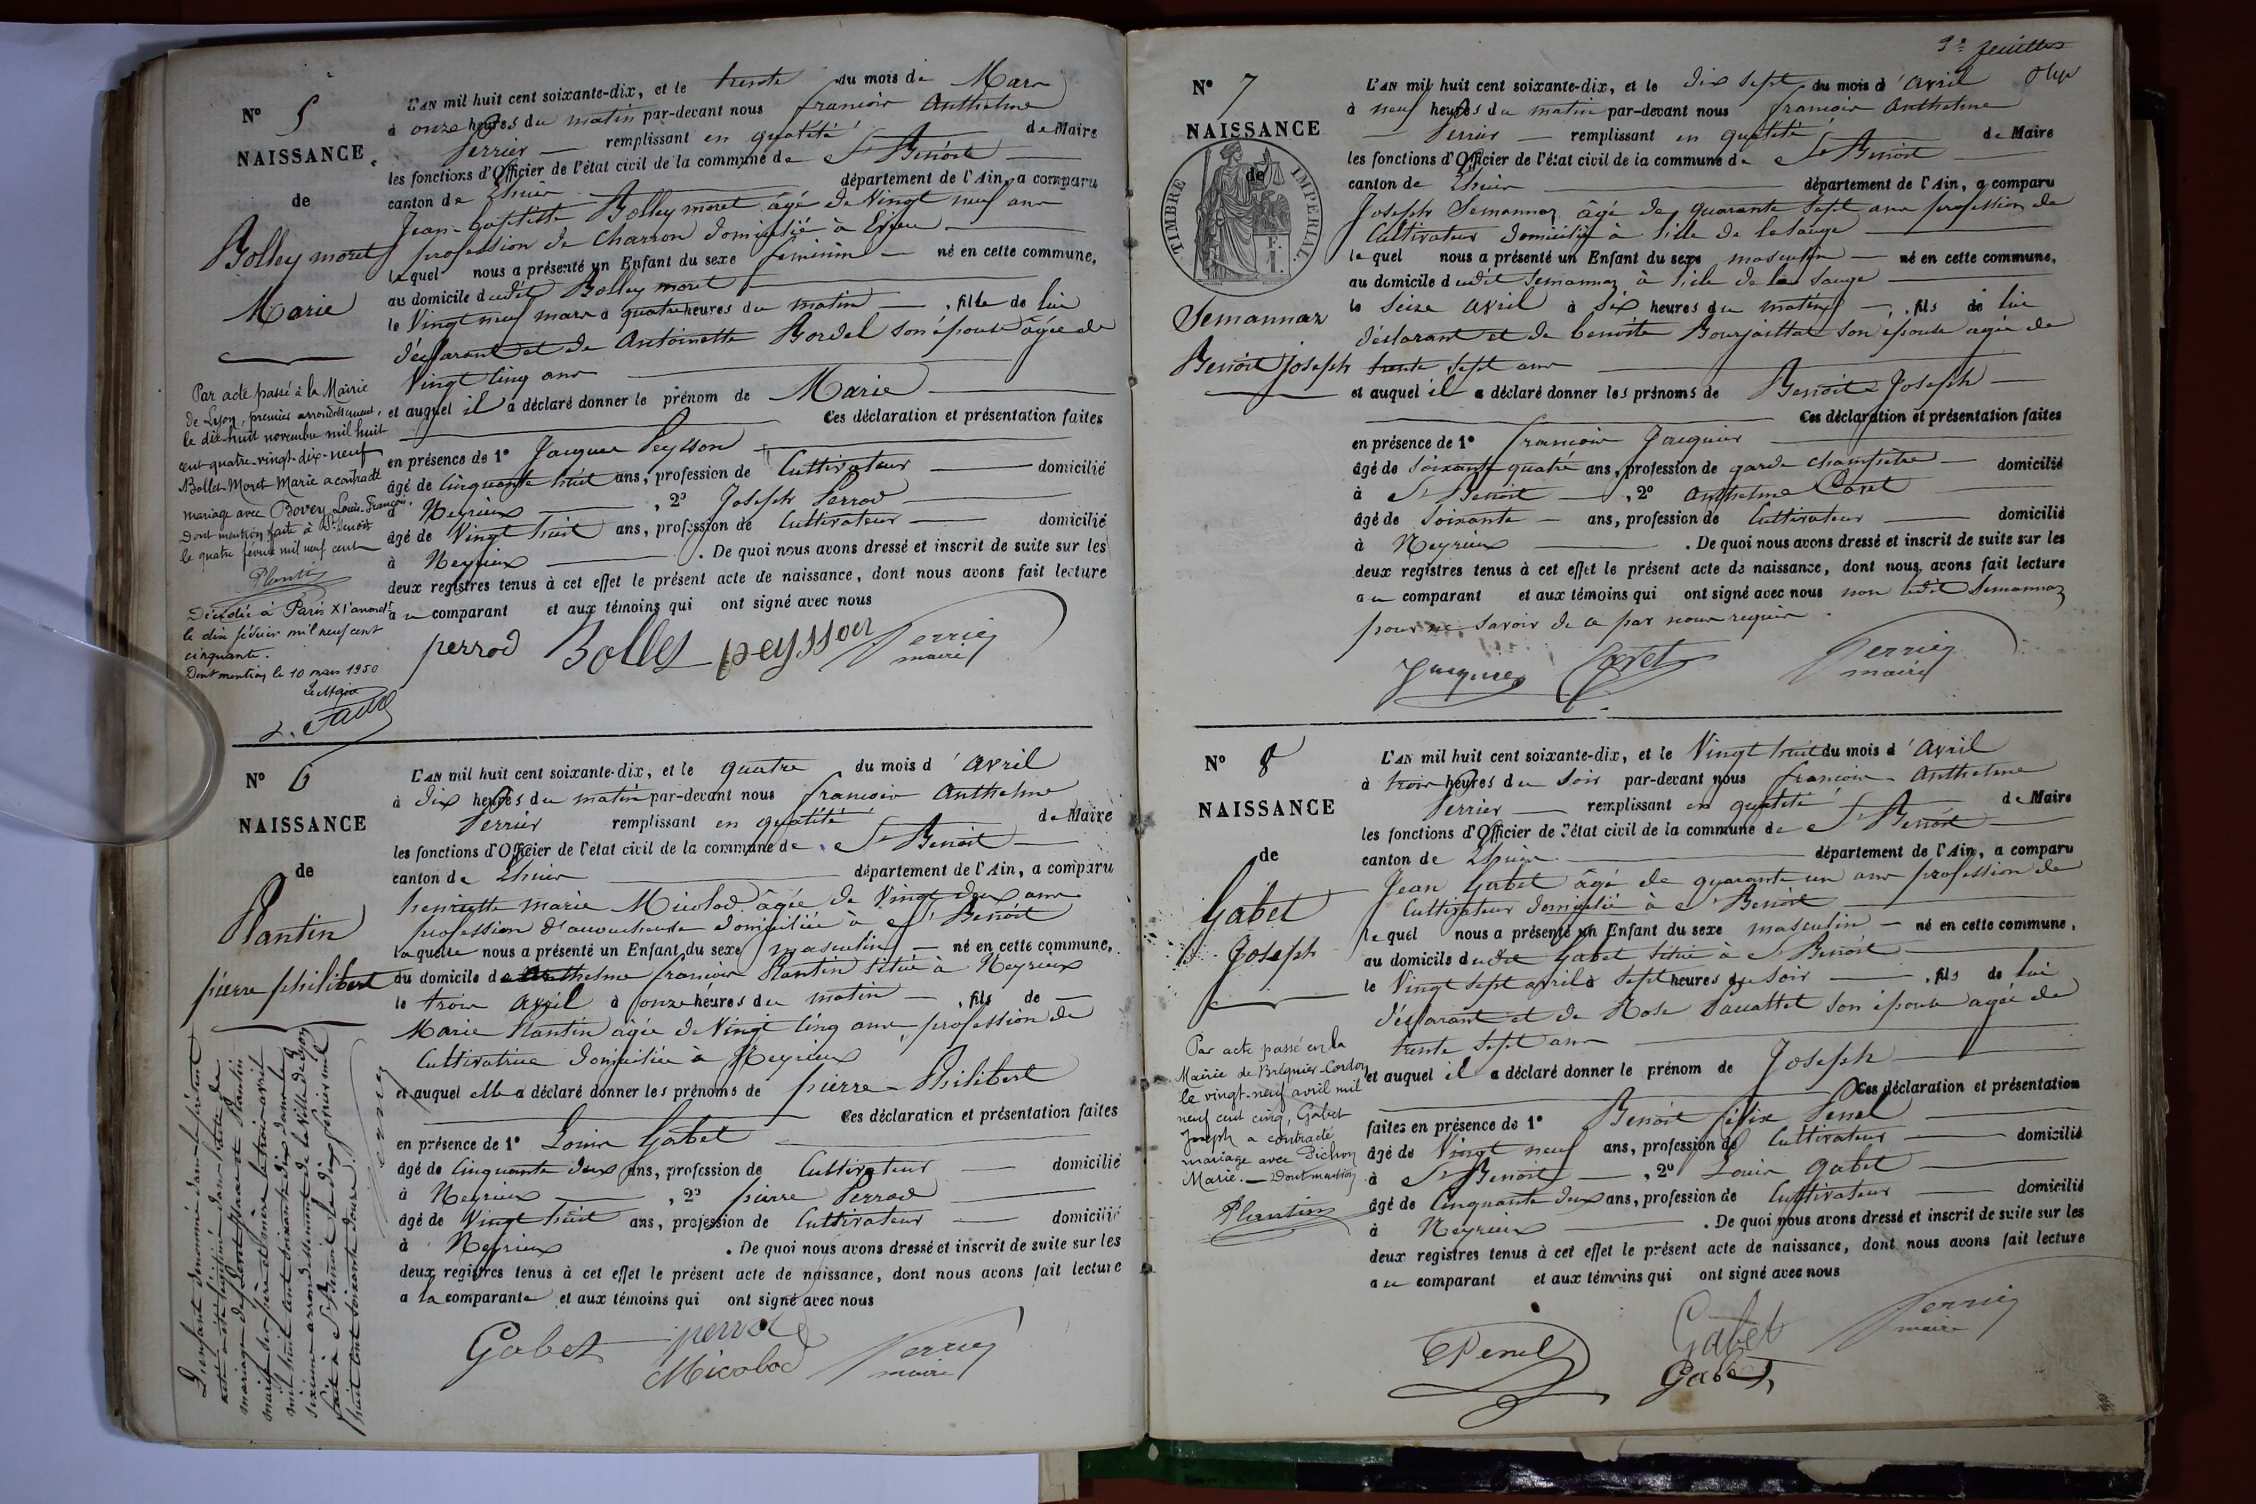 N° 5
NAISSANCE
de
Bolley moret
Marie
L'AN mil huit cent soixante-dix, et le trente du mois de Mars
à onze heures du matin par-devant nous francois Anthelme
Perrier remplissant en qualité de Maire
les fonctions d'Officier de l'état civil de la commune de St Benoit
canton de Lhuis département de l'Ain, a comparu
Jean-Baptiste Bolley moret âgé de Vingt neuf ans
profession de Charron domicilié à Evieu
lequel nous a présenté un Enfant du sexe feminin né en cette commune,
au domicile dudit Bolley moret
le Vingt neuf mars à quatre heures du matin, fille de lui
déclarant et de Antoinette Bordel son épouse âgée de
Vingt cinq ans
et auquel il a déclaré donner le prénom de Marie
Ces déclaration et présentation faites
en présence de 1° Jacques Peysson
âgé de cinquante huit ans, profession de Cultivateur domicilié
à Neyrieux, 2° Joseph Perrod
âgé de Vingt huit ans, profession de Cultivateur domicilié
à Neyrieux. De quoi nous avons dressé et inscrit de suite sur les
deux registres tenus à cet effet le présent acte de naissance, dont nous avons fait lecture
au comparant et aux témoins qui ont signé avec nous
perrod Bolley peysson Perrier
maire
Par acte passé à la Mairie
de Lyon, premier arrondissement,
le dix-huit novembre mil huit
cent-quatre-vingt-dix-neuf
Bolley-Moret Marie a contracté
mariage avec Bovey Louis-François,
Dont mention faite à St Benoit
le quatre février mil neuf cent
Plantin
Décédée à Paris XIe arrondt
le dix février mil neuf cent
cinquante.
Dont mention le 10 mars 1950
N° 6
NAISSANCE
de
Plantin
pierre philibert
L'AN mil huit cent soixante-dix, et le quatre du mois d'avril
à Dix heures du matin par-devant nous francois Anthelme
Perrier remplissant en qualité de Maire
les fonctions d'Officier de l'état civil de la commune de St Benoit
canton de Lhuis département de l'Ain, a comparu
henriette marie Micolod âgée de Vingt deux ans
profession d'accoucheuse domiciliée à St Benoit
laquelle nous a présenté un Enfant du sexe masculin né en cette commune,
au domicile de Anthelme francois Plantin situé à Neyrieux
le trois avril à onze heures du matin, fils de
Marie Plantin âgée de Vingt cinq ans profession de
Cultivatrice domiciliée à Neyrieux
et auquel elle a déclaré donner les prénoms de pierre-Philibert
Ces déclaration et présentation faites
en présence de 1° Louis Gabet
âgé de cinquante deux ans, profession de Cultivateur domicilié
à Neyrieux, 2° pierre Perrod
âgé de Vingt huit ans, profession de Cultivateur domicilié
à Neyrieux. De quoi nous avons dressé et inscrit de suite sur les
deux registres tenus à cet effet le présent acte de naissance, dont nous avons fait lecture
a la comparante et aux témoins qui ont signé avec nous
Gabet perrod
Micolod Perrier
maire
L'enfant dénommé dans le présent
acte a été légitimé dans l'acte de
mariage de
mil huit cent soixante dix dans le
sixieme arrondissement de la Ville de Lyon
fait à St Benoit le deux janvier mil
huit cent soixante douze.
Perrier
N° 7
NAISSANCE
de
TIMBRE IMPÉRIAL
Semannaz
Benoit joseph
L'AN mil huit cent soixante-dix, et le dix sept du mois d'avril
à neuf heures du matin par-devant nous francois Anthelme
Perrier remplissant en qualité de Maire
les fonctions d'Officier de l'état civil de la commune de St Benoit
canton de Lhuis département de l'Ain, a comparu
Joseph Semannaz âgé de quarante sept ans profession de
Cultivateur domicilié à l'isle de la Sauge
lequel nous a présenté un Enfant du sexe masculin né en cette commune,
au domicile dudit Semannaz à l'isle de la Sauge
le Seize avril à six heures du matin, fils de lui
déclarant et de benoite Bourjaillat son épouse agée de
trente sept ans
et auquel il a déclaré donner les prénoms de Benoit-Joseph
Ces déclaration et présentation faites
en présence de 1° francois Jacquier
âgé de soixante quatre ans, profession de garde champêtre domicilié
à St Benoit, 2° Anthelme Caret
âgé de soixante ans, profession de Cultivateur domicilié
à Neyrieux. De quoi nous avons dressé et inscrit de suite sur les
deux registres tenus à cet effet le présent acte de naissance, dont nous avons fait lecture
au comparant et aux témoins qui ont signé avec nous non ledit Semannaz
pour ne savoir de ce par nous requis
Jacquier Caret Perrier
maire
N° 8
NAISSANCE
de
Gabet
Joseph
L'AN mil huit cent soixante-dix, et le Vingt huit du mois d'avril
à trois heures du soir par-devant nous francois-Anthelme
Perrier remplissant en qualité de Maire
les fonctions d'Officier de l'état civil de la commune de St Benoit
canton de Lhuis département de l'Ain, a comparu
Jean Gabet âgé de quarante un ans profession de
Cultivateur domicilié à St Benoit
lequel nous a présenté un Enfant du sexe masculin né en cette commune,
au domicile dudit Gabet situé à St Benoit
le Vingt sept avril à sept heures du soir, fils de lui
déclarant et de Rose son épouse agée de
trente sept ans
et auquel il a déclaré donner le prénom de Joseph
Ces déclaration et présentation
faites en présence de 1° Benoit félix Penel
âgé de Vingt neuf ans, profession de Cultivateur domicilié
à St Benoit, 2° Louis Gabet
âgé de Cinquante deux ans, profession de Cultivateur domicilié
à Neyrieux. De quoi nous avons dressé et inscrit de suite sur les
deux registres tenus à cet effet le présent acte de naissance, dont nous avons fait lecture
au comparant et aux témoins qui ont signé avec nous
Penel Gabet Perrier
Gabet maire
Par acte passé en la
Mairie de Brégnier-Cordon
le vingt-neuf avril mil
neuf cent cinq, Gabet
Joseph a contracté
mariage avec Pichon
Marie. — Dont mention
Plantin